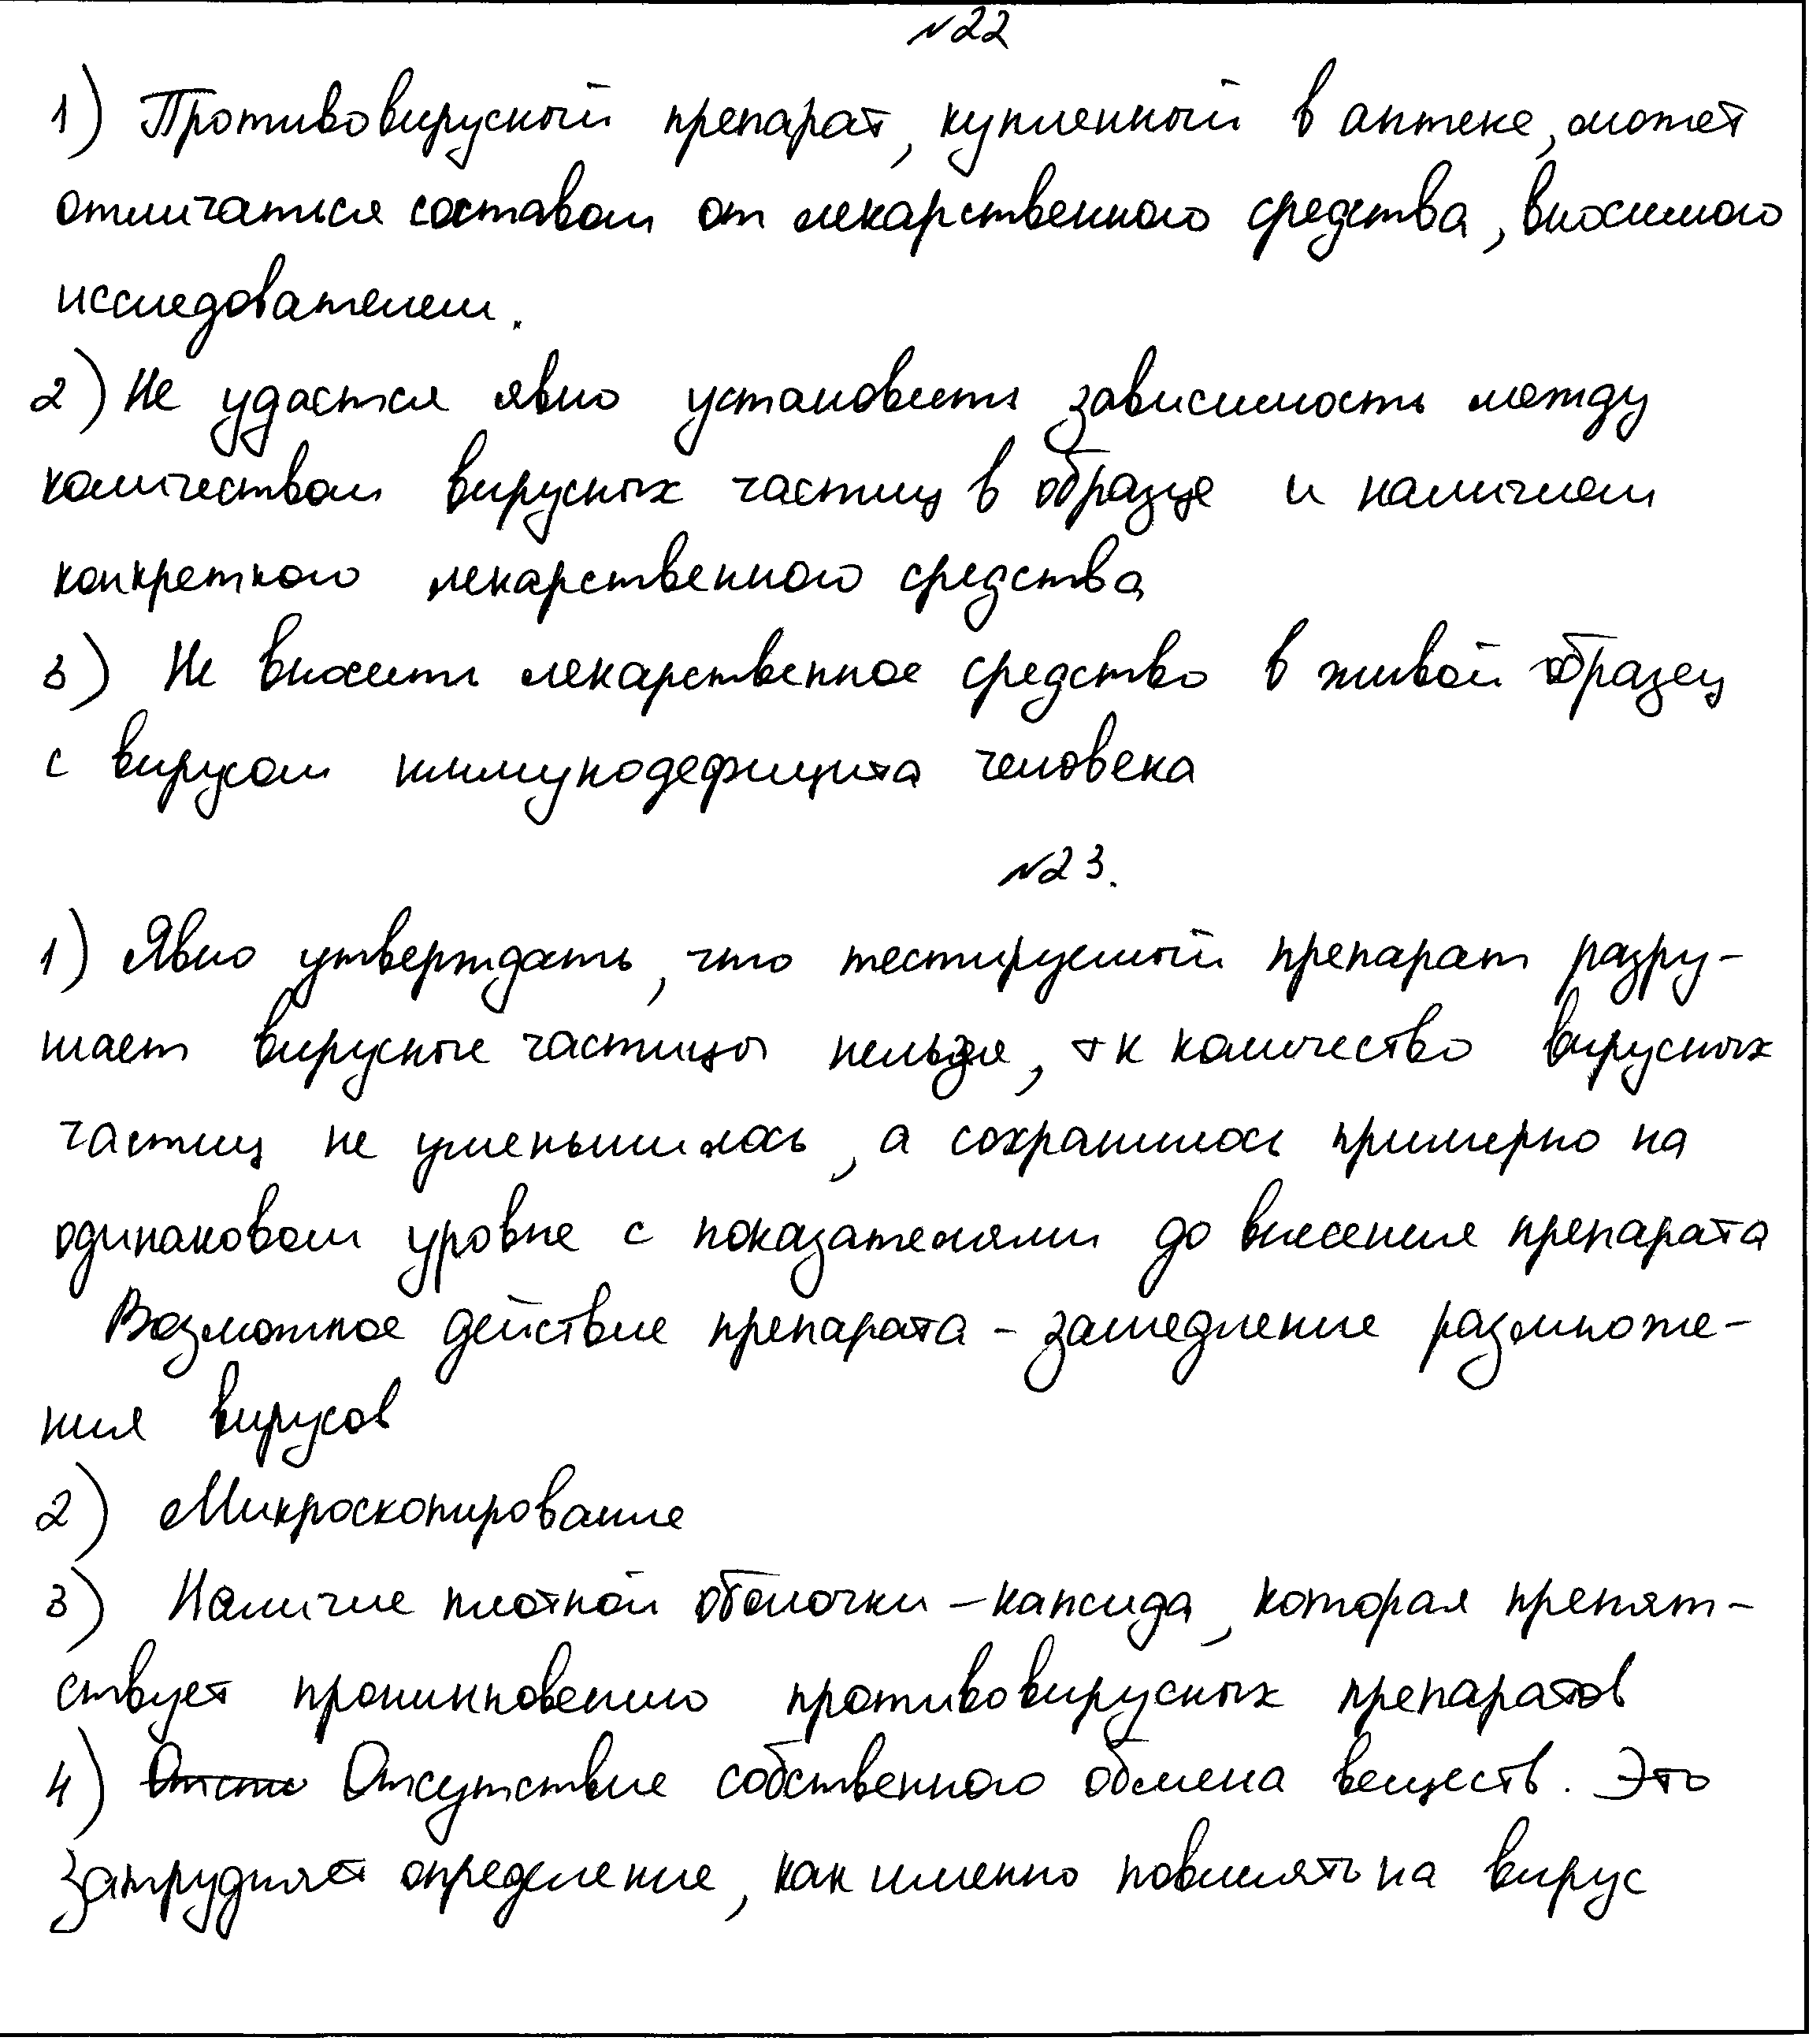 №22
1) Противовирусный препарат, купленный в аптеке, может
отличаться составом от лекарственного средства, вносимого
исследователем.
2) Не удастся явно установить зависимость между
количеством вирусных частиц в образце и наличием
конкретного лекарственного средства
3) Не вносить лекарственное средство в живой образец
с вирусом иммунодефицита человека
№23.
1) Явно утверждать, что тестируемый препарат разру-
шает вирусные частицы нельзя, т к количество вирусных
частиц не уменьшилось, а сохранилось примерно на
одинаковом уровне с показателями до внесения препарата
Возможное действие препарата - замедление размноже-
ния вирусов
2) Микроскопирование
3) Наличие плотной оболочки - капсида, которая препят-
ствует проникновению противовирусных препаратов
4) Отсутствие собственного обмена веществ. Это
затрудняет определение, как именно повлиять на вирус